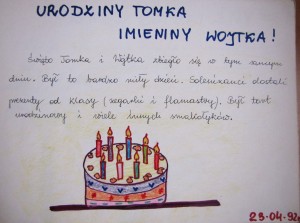 URODZINY TOMKA
IMIENINY WOJTKA!
Święto Tomka i Wojtka zbiegło się w tym samym
dniu. Był to bardzo miły dzień. Solenizanci dostali
prezenty od klasy (zegarki i flamastry). Był tort
urodzinowy i wiele innych smakołyków.
23-04-92